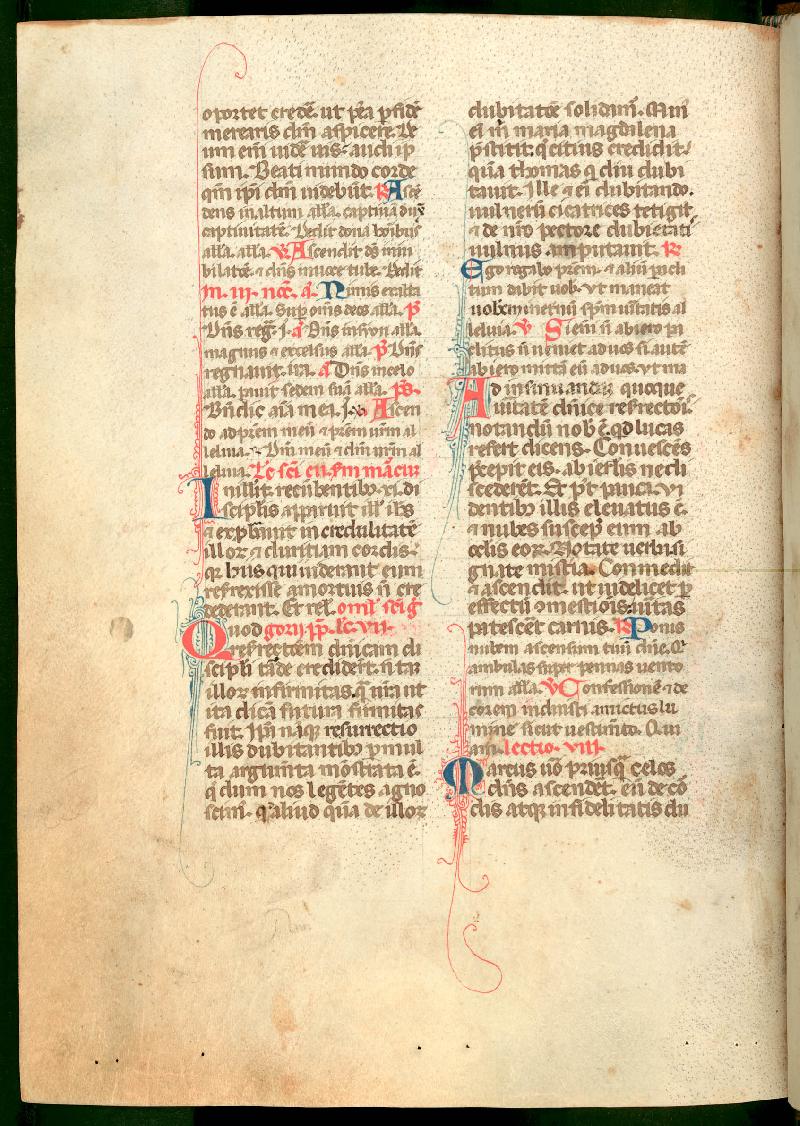 oportet crede᷉. ut p̱ea p̱fide᷉
merearis dn̄m aspicere. Ve
um em̄ uide ius. audi ip
sum. Beati mundo corde
qm̄ ipi dm̄ uidebūt. R Asce᷉
dens in altum all'a. captiuā dux̄
captiuitatē. Dedit dona hōibus
all'a. all'a. V Ascendit ds̄ in iu
bilatōe. ⁊ dn̄s in uoce tube. Dedit
In. iii. noc̄. a. Nimis exalta
tus ē all'a. Sup̄ om̄s deos all'a. p̄
Dn̄s reg̃. i. a Dn̄s in syon all'a.
magnus ⁊ excelsus all'a. p̄ Dn̄s
regnauit. ira. a Dn̄s in celo
all'a. parauit sedem suā all'a. p̄s.
Bn̄dic aīa mea. V Ascen
do ad pr̄em meū ⁊ pr̄em ur̄m al
leluia. Dm̄ meū ⁊ dm̄ ur̄m al
leluia. Le sc̄i eu. scd̄m marcū
In illo t. recūbentib. xi. di
scipulis apparuit ill' ih̄s
⁊ exp̱brauit incredulitatē
illoꝝ ⁊ duritiam cordis.
qꝛ hiis qui uiderant eum
resurrexisse a mortuis n̄ cre
dederant. Et rel̄. omīl' sc̄i g̃
Quod gorii pp̄. lc̄. vii.
resurrectiōem dn̄icam di
scipli tarde crediderūt. n̄ tā
illoꝝ infirmitas. q̄ nr̄a ut
ita dicā futura firmitas
fuit. Ip̄a nāq̨ resurrectio
illis dubitantib p̱ mul
ta argum̄ta mōstrata ē.
q̄ dum nos legētes agno
scim̄. qͥ aliud quā de illoꝝ
dubitatōe solidam̄. Min̄
ei m̄ maria magdalena
p̄stitit. q̄ citius credidit.
quā thomas qͥ diu dubi
tauit. Ille ⁊ ei dubitando.
uulnerū cicatrices tetigit
⁊ de nr̄o pectore dubietati
uulnus amputauit. R
Ego rogabo pr̄em. ⁊ aliū pacli
tum dabit uob. Vt maneat
uobcum in et̄nū sp̄m ūitatis al
leluia. V Si em̄ n̄ abiero pa
clitus n̄ ueniet ad uos si. autē
abiero mittā eū ad uos. vt ma
Ad insinuandā quoque
ueritatē dn̄ice resrectōis.
notandū nob ē. qd lucas
refert dicens. Conuescēs
p̄cepit eis. ab ieroslis ne di
scederēt. Et pt pauca. vi
dentib illis eleuatus ē.
⁊ nubes suscep̄ eum ab
oclis eoꝝ. Notate uerba si
gnate misteria. Conuescēs
⁊ ascendit. ut uidelicet p̱
effectū ꝯmestiōis. ūitas
patesceret carnis. R Ponis
nubem ascensum tuū dn̄e. Q
ambulas super pennas uento
rum all'a. V Confessionē ⁊ de
corem induisti amictus lu
mine sicut uestim̄to. Q am
lectio. viii.
Marcus ūo priusq̄ celos
dn̄s ascendēt. eū de cor
dis atq̨ infidelitatis du